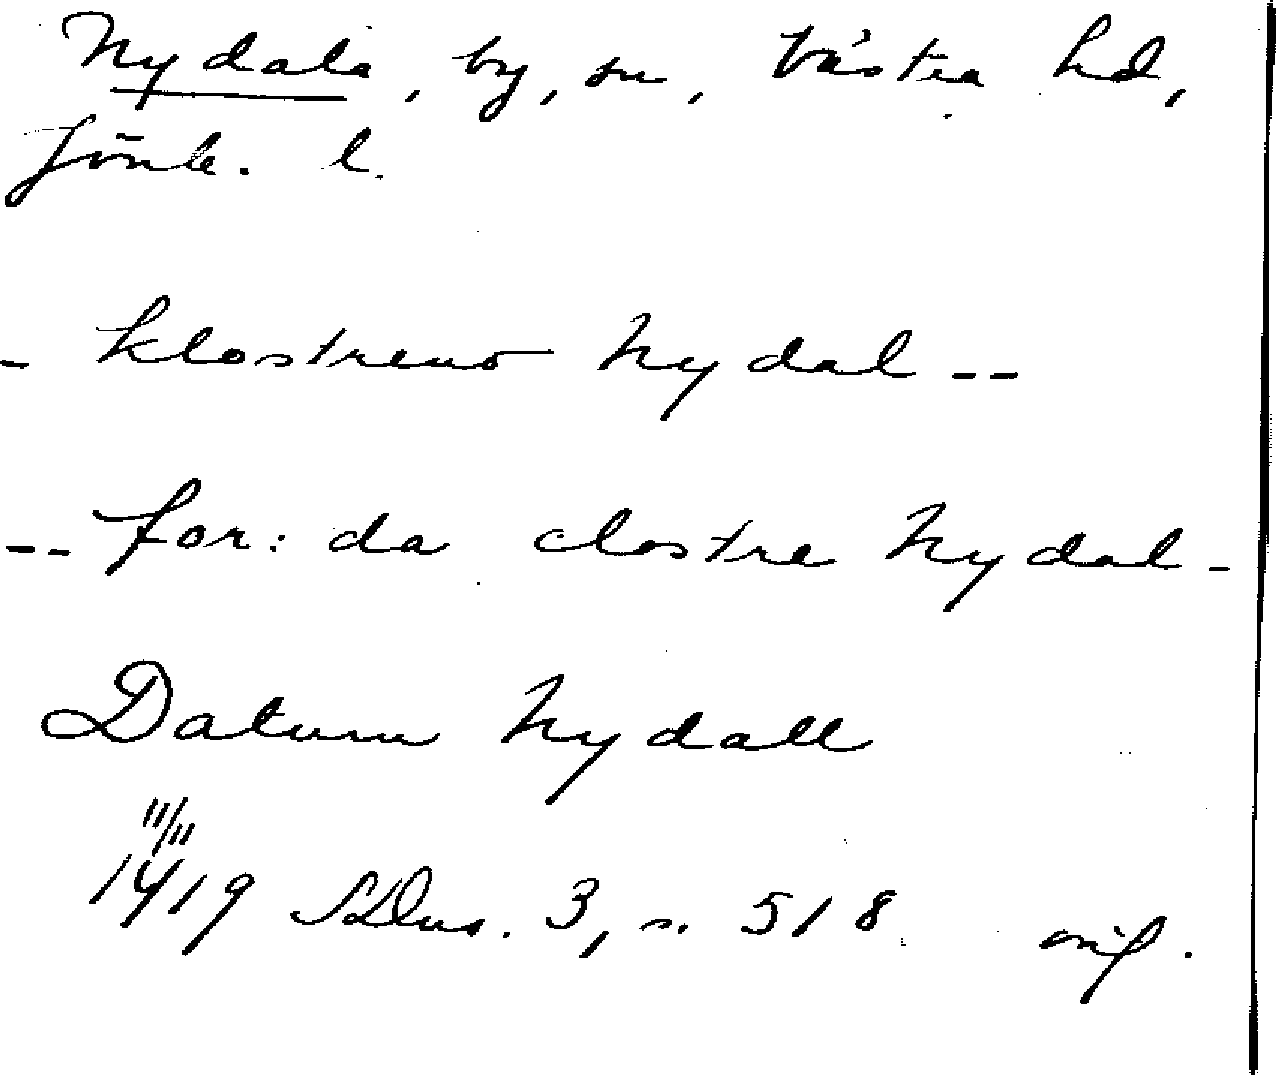 Nydala, by, sn, Västra hd,
Jönk. l.
- klostreno Nydal --
-- for: da clostre Nydal -
Datum Nydall
11/11
1419 SDns. 3, s. 518 orig.